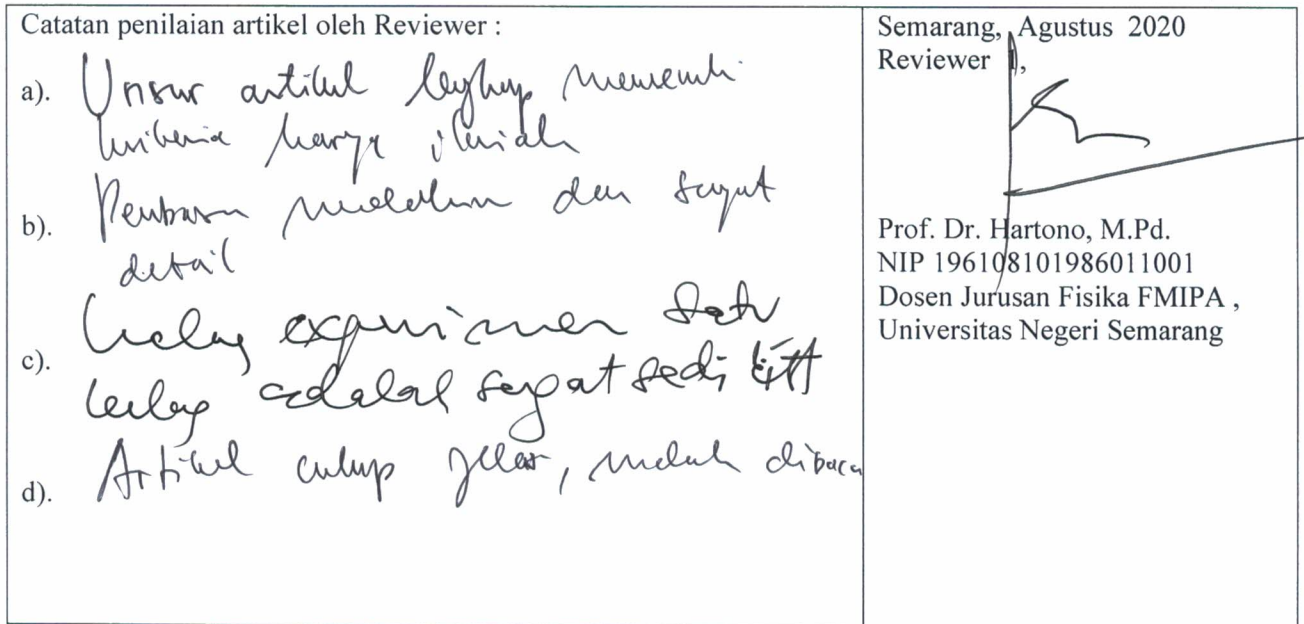 Catatan penilaian artikel oleh Reviewer :
a). Unsur artikel lengkap memenuhi
kriteria karya ilmiah
b). dan sangat
detail
c). experimen satu
adalah sangat sedikit
d). Artikel cukup jelas, mudah dibaca
Semarang, Agustus 2020
Reviewer 1,
Prof. Dr. Hartono, M.Pd.
NIP 196108101986011001
Dosen Jurusan Fisika FMIPA ,
Universitas Negeri Semarang